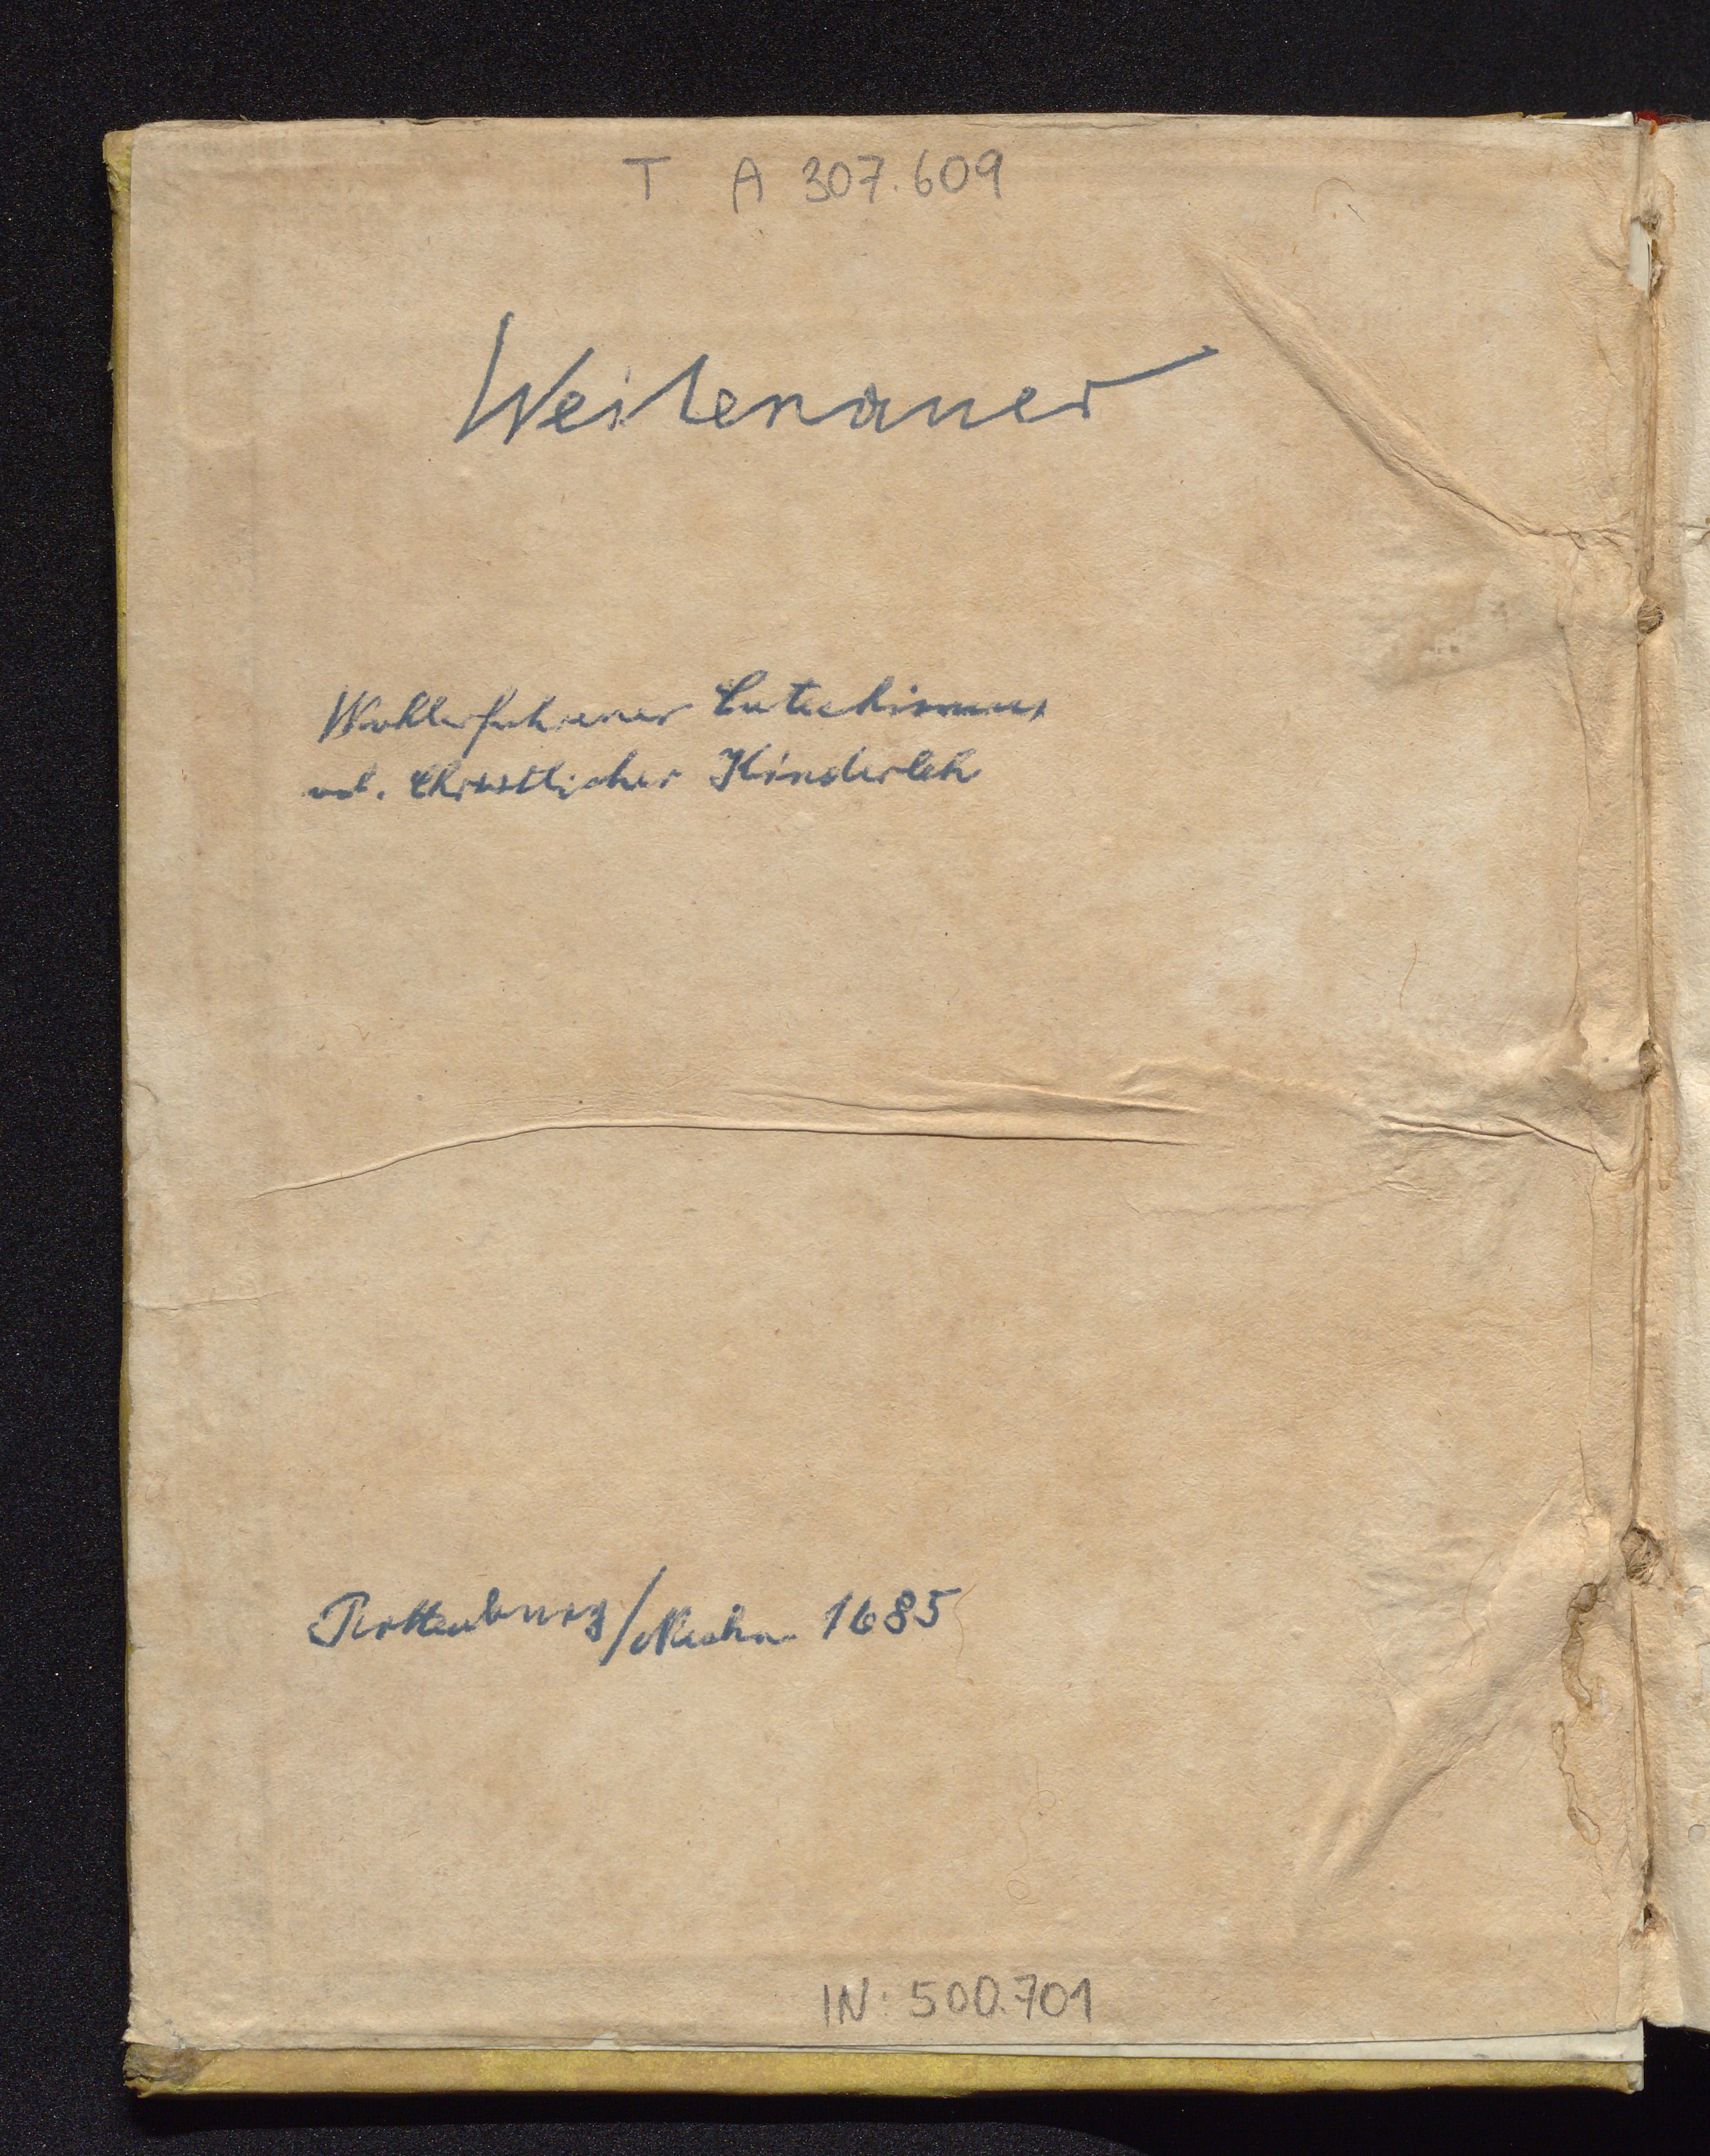 T A 307.609
Weitenauer
Wohlerfahrener Catechismus
od. Christlicher Kinderleh
Rottenburg/Neckar 1685
IN: 500.701